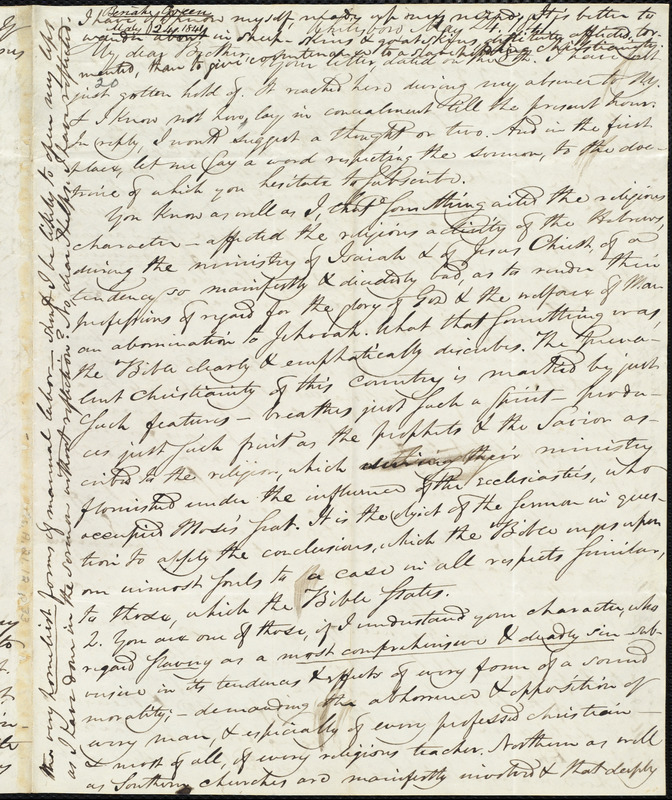 I have upon myself, ready upon my it is better to
wander about in sheep skins & goat skins, destitute, afflicted, tor-
mented, than to give countenance to a slaveholding Christianity.
Beriah Green
Whitesboro
My dear Brother,
Your letter dated on the I have
20
just gotten hold of. It reached here during my absence to N.Y.
& I know not how, lay in concealment till the present hour.
In reply, I would suggest a thought or two. And in the first
place, let me say a word respecting the sermon, to the doc-
trine of which you hesitate to subscribe.
You know as well as I, that something aided the religious
character — affected the religious activity of the Hebrews
during the ministry of Isaiah & of Jesus Christ, of a
tendency so manifestly & decidedly bad as to render their
professions of regard for the glory of God & the welfare of Man
an abomination to Jehovah. What that something was,
the Bible clearly & emphatically describes. The preva-
lent Christianity of this country is marked by just
such features — breathes just such a spirit — produ-
ces just such fruit as the prophets & the Savior as-
cribed to the religion, which their ministry
flourished under the influence of the ecclesiastics, who
occupied Moses's seat. It is the object of the sermon in ques-
tion to apply the conclusions, which the Bible urges upon
our inmost souls to a case in all respects similar
to those, which the Bible states.
2. You are one of those, if I understand your character, who
regard slavery as a most comprehensive & deadly sin — sub-
versive in its tendencies & effects of every form of a sound
morality; — demanding the abhorrence & opposition of
every man, & especially of every professed Christian —
& most of all, of every religious teacher. Northern as well
as Southern churches are manifestly involved & that deeply
the very homeliest forms of manual labor — should I be likely to open my lips
as I have done in the sermon without reflection? No, dear Phelps. I have reflected.